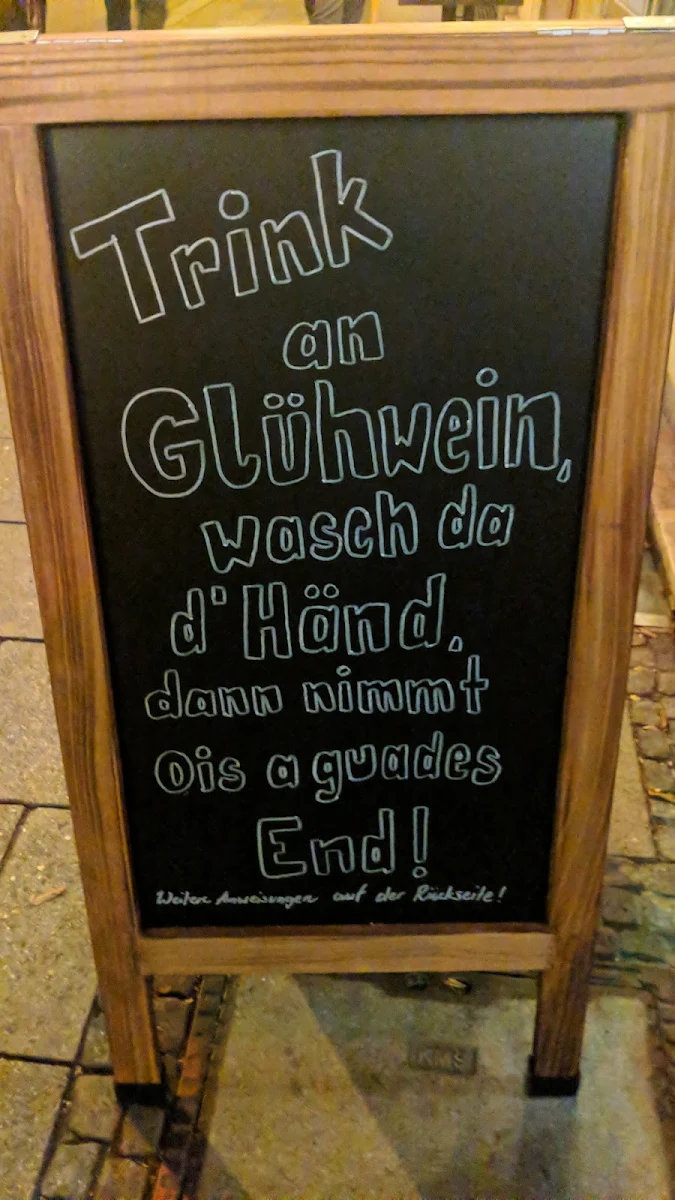 Trink
an
Glühwein,
wasch da
d'Händ,
dann nimmt
Ois a guades
End!
Weitere Anweisungen auf der Rückseite!
KMS